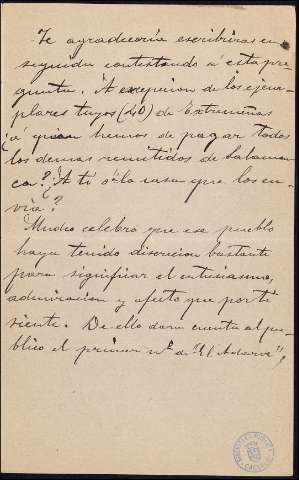 Te agradecería escribieras en
seguida contestando á esta pre
gunta. A excepcion de los ejem
plares tuyos (40) de Extremeñas
¿á quien hemos de pagar todos
los demas remitidos de Salaman
ca? ¿A ti ó la casa que los en
vía?
Mucho celebro que ese pueblo
haya tenido discrecion bastante
para significar el entusiasmo,
admiracion y afecto que por ti
siente. De ello dará cuenta al pú
blico el primer nº de "El Adarve",
BIBLIOTECA PUBLICA
CACERES